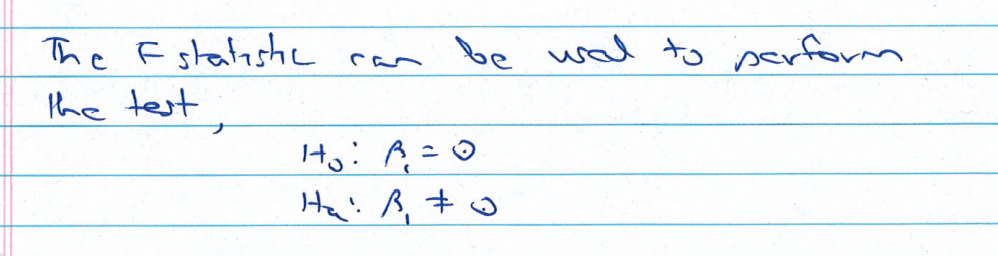 The F statistic can be used to perform
the test,
H₀: β₁ = 0
Hₐ: β₁ ≠ 0